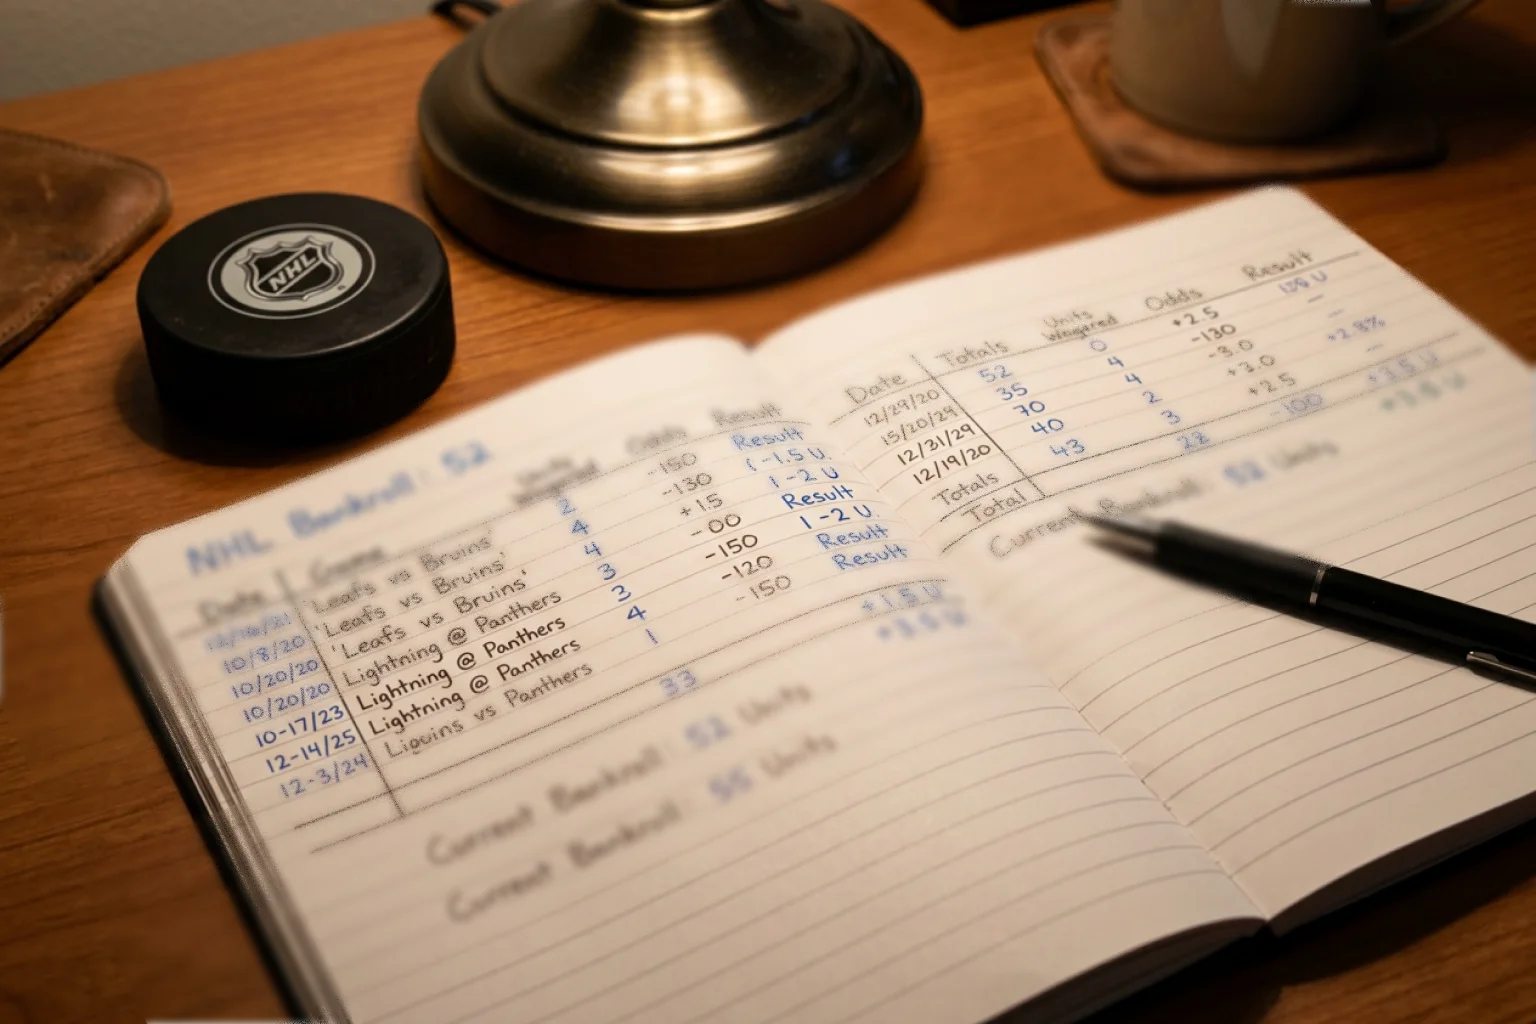 NHL
NHL Bankroll: 52
Date Game Units Wagered Odds Result
'Leafs vs Bruins' 2 -150 Result
10/8/20 'Leafs vs Bruins' 4 -130 1-1.5 U.
10/20/20 'Leafs vs Bruins' 4 +1.5 1-2 U
10/20/20 Lightning @ Panthers 3 -00 Result
10-17/23 Lightning @ Panthers 3 -150 1-2 U.
12-14/25 Lightning @ Panthers 4 -120 Result
12-3/24 Liquins vs Panthers 1 -150 Result
33 +1.5 U
Current Bankroll: 52 Units
Current Bankroll: 55 Units
Date Totals Units Wagered Odds Result
12/29/20 52 0 +2.5
15/20/29 35 4 -130 —
12/31/29 70 4 -3.0 —
12/19/20 40 2 +3.0 +2.8%
Totals 43 3 +2.5 —
Total 22 -100 +3.5 U
Current Bankroll: 52 Units